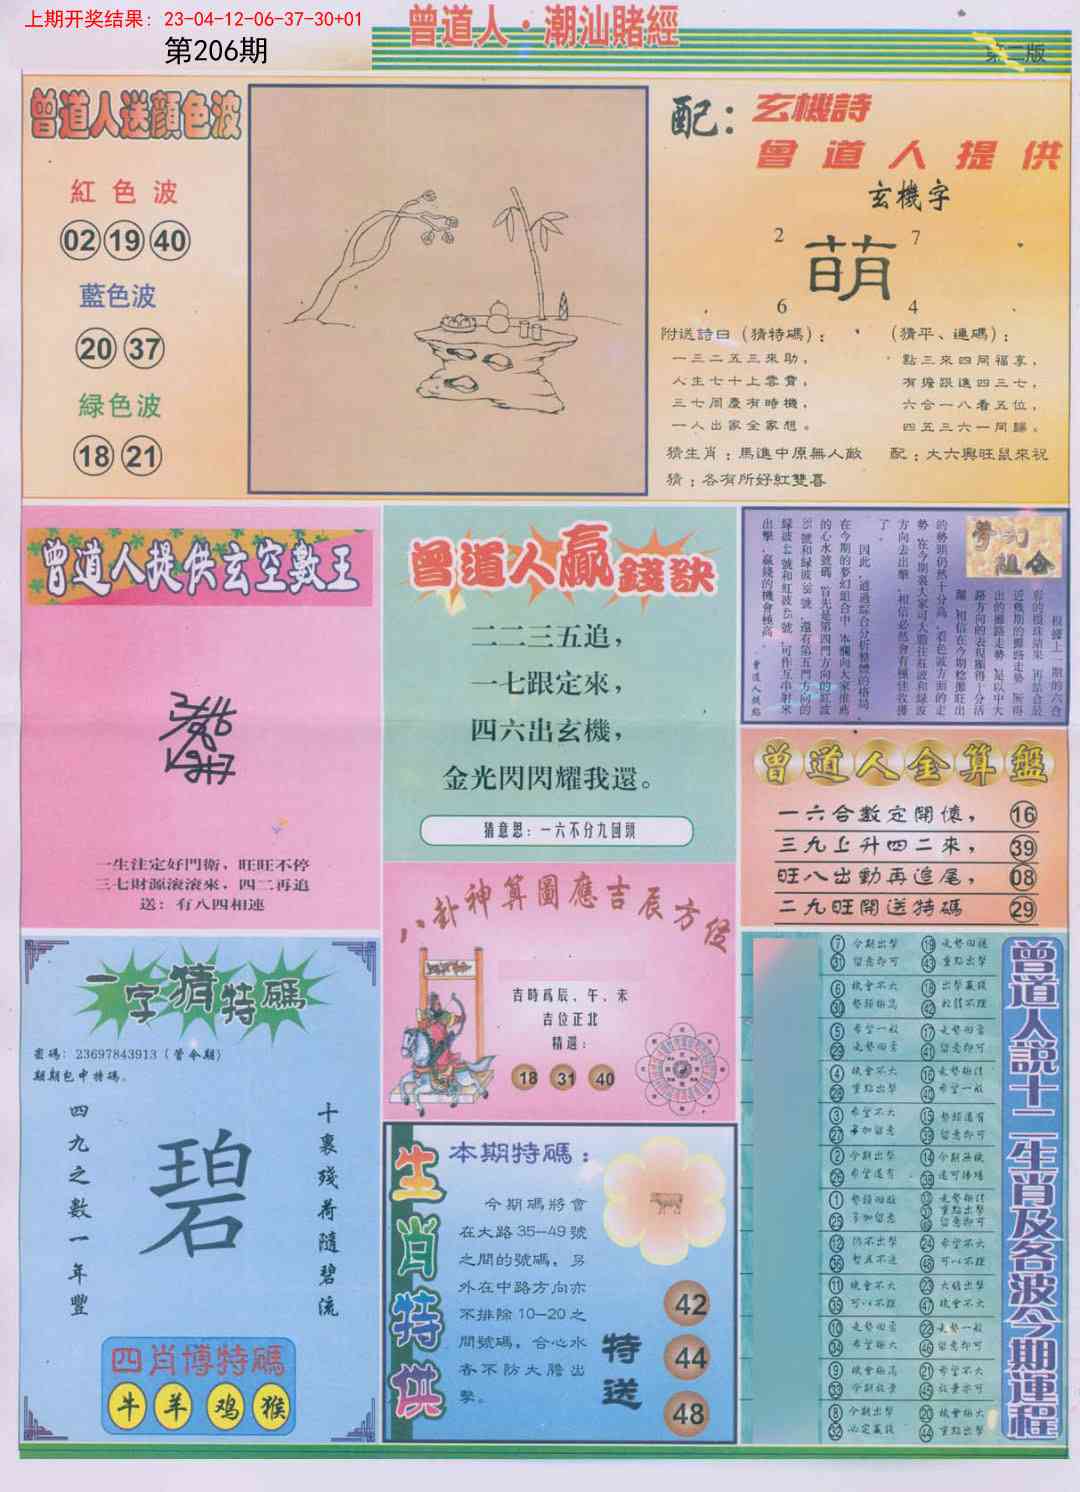 上期开奖结果: 23-04-12-06-37-30+01
第206期
曾道人·潮汕賭經
第二版
曾道人送顔色波
紅色波
02 19 40
藍色波
20 37
緑色波
18 21
配:
玄機詩
曾道人提供
玄機字
2 7
萌
6 4
附送詩曰（猜特碼）:
一三二五三來助,
人生七十上雲霄,
三七周慶有時機,
一人出家全家想。
（猜平、連碼）:
點三來四同福享,
有擔跟進四三七,
六合一八看五位,
四五三六一同歸。
猜生肖:馬進中原無人敵
配:大六興旺鼠來祝
猜:各有所好紅雙喜
曾道人提供玄空數王
一生注定好門衛，旺旺不停
三七財源滾滾來，四二再追
送：有八四相連
曾道人贏錢訣
二二三五追，
一七跟定來，
四六出玄機，
金光閃閃耀我還。
猜意思:一六不分九回頭
夢幻組合
根據上一期的六合
彩的攪珠結果,再結合最
近幾期的攤路走勢,所得
出的攤路走勢,是以中大
路方向的表現顯得十分活
躍,相信在今期稔攤旺出
的勢頭仍然十分高,看色波方面的走
勢,在今期裏大家可大膽往紅波和緑波
方向去出擊,相信必然會有極佳收獲
了。
因此,通過綜合分析整體的格局,
在今期的夢幻組合中,本欄向大家推薦
的心水號碼,首先是第四門方向的紅波
緑波44號和紅波45號,可作互串射來
出擊,贏錢的機會極高。
曾道人金算盤
一六合數定開懷, 16
三九上升四二來, 39
旺八出動再追尾, 08
二九旺開送特碼 29
八卦神算圖應吉辰方位
吉時爲辰、午、未
吉位正北
精選:
18 31 40
一字猜特碼
密碼: 23697843913（管令期）
期期包中特碼。
十裏殘荷隨碧流
碧
四九之數一年豐
四肖博特碼
牛 羊 鸡 猴
生肖特供
本期特碼:
今期碼將會
在大路35—49號
之間的號碼，另
外在中路方向亦
不排除10—20之
間號碼，合心水
者不防大膽出
擊。
特送
42
44
48
曾道人説十二生肖及各波今期運程
7 31 今期出擊 留意即可
19 43 走勢回穩 重點出擊
6 30 機會不大 勢頭極高
18 42 出擊贏錢
5 29 希望一般 走勢回落
17 41 留意即可
4 28 機會不大 重點出擊
16 40 走勢極佳 希望一般
3 27 希望不大 多加留意
15 39 勢頭還有 留意即可
2 26 今期出擊 希望還有
14 38
1 25 多加留意
走勢極佳 重點出擊 留意即可
12 36
24 48 希望不大 可以不理
11 35 機會不大 可以不理
23 47 大膽出擊 機會不大
10 34 希望極大
22 46 走勢一般 留意即可
9 33 機會極高 今期放棄
21 45 希望不大 放棄亦可
8 32 今期出擊 必定贏錢
20 44 機會極大 重點出擊